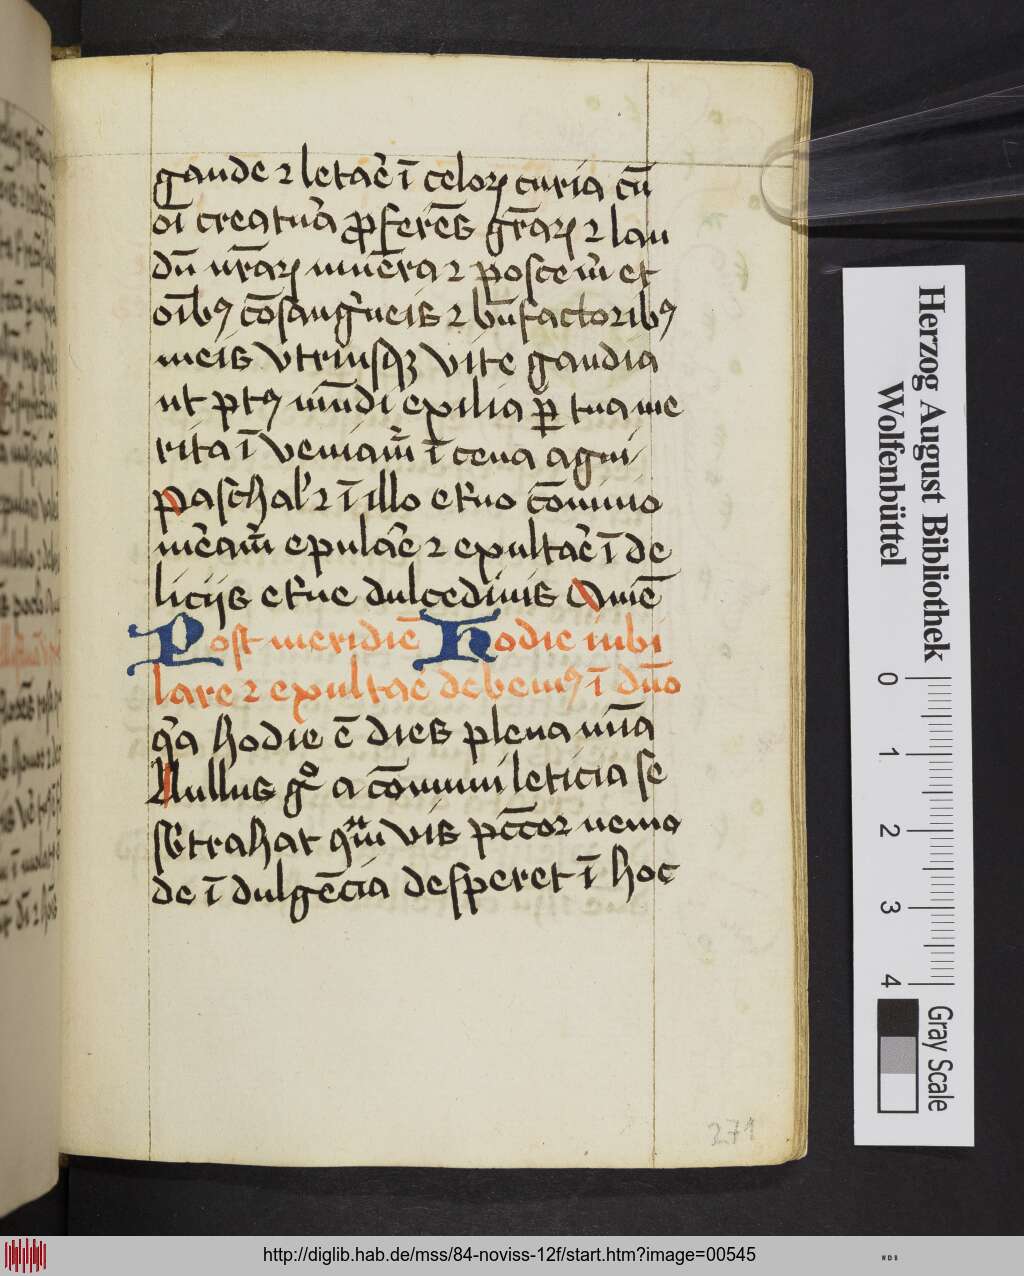 gaude ⁊ letar̄e ī celoꝝ curia cū
oī creatur̄a ꝓferēs gr̄aꝝ ⁊ lau
dū nr̄aꝝ mūera ⁊ posce m̄ et
oībꝰ cōsangwīneis ⁊ bn̄factoribꝰ
meis vtriusqꝫ vite gaudia
ut
mūdi exilia ꝑ tua me
rita ī veniam̄ ī cena agni
paschal̄ ⁊ ī illo etn̄o cōviuio
mēam̄ epular̄e ⁊ exultar̄e ī de
licijs etn̄e dulcedinis Amē
Post meridiē Hodie iubi
lare ⁊ exultare debemꝰ ī dn̄o
qa hodie ē dies plena
Nullus gͦ a cōmuni leticia se
sb̄trahat qm̄vis pcc̄cor nemo
de īdulgēcia desperet ī hoc
271
Herzog August Bibliothek
Wolfenbüttel
0 1 2 3 4
Gray Scale
http://diglib.hab.de/mss/84-noviss-12f/start.htm?image=00545